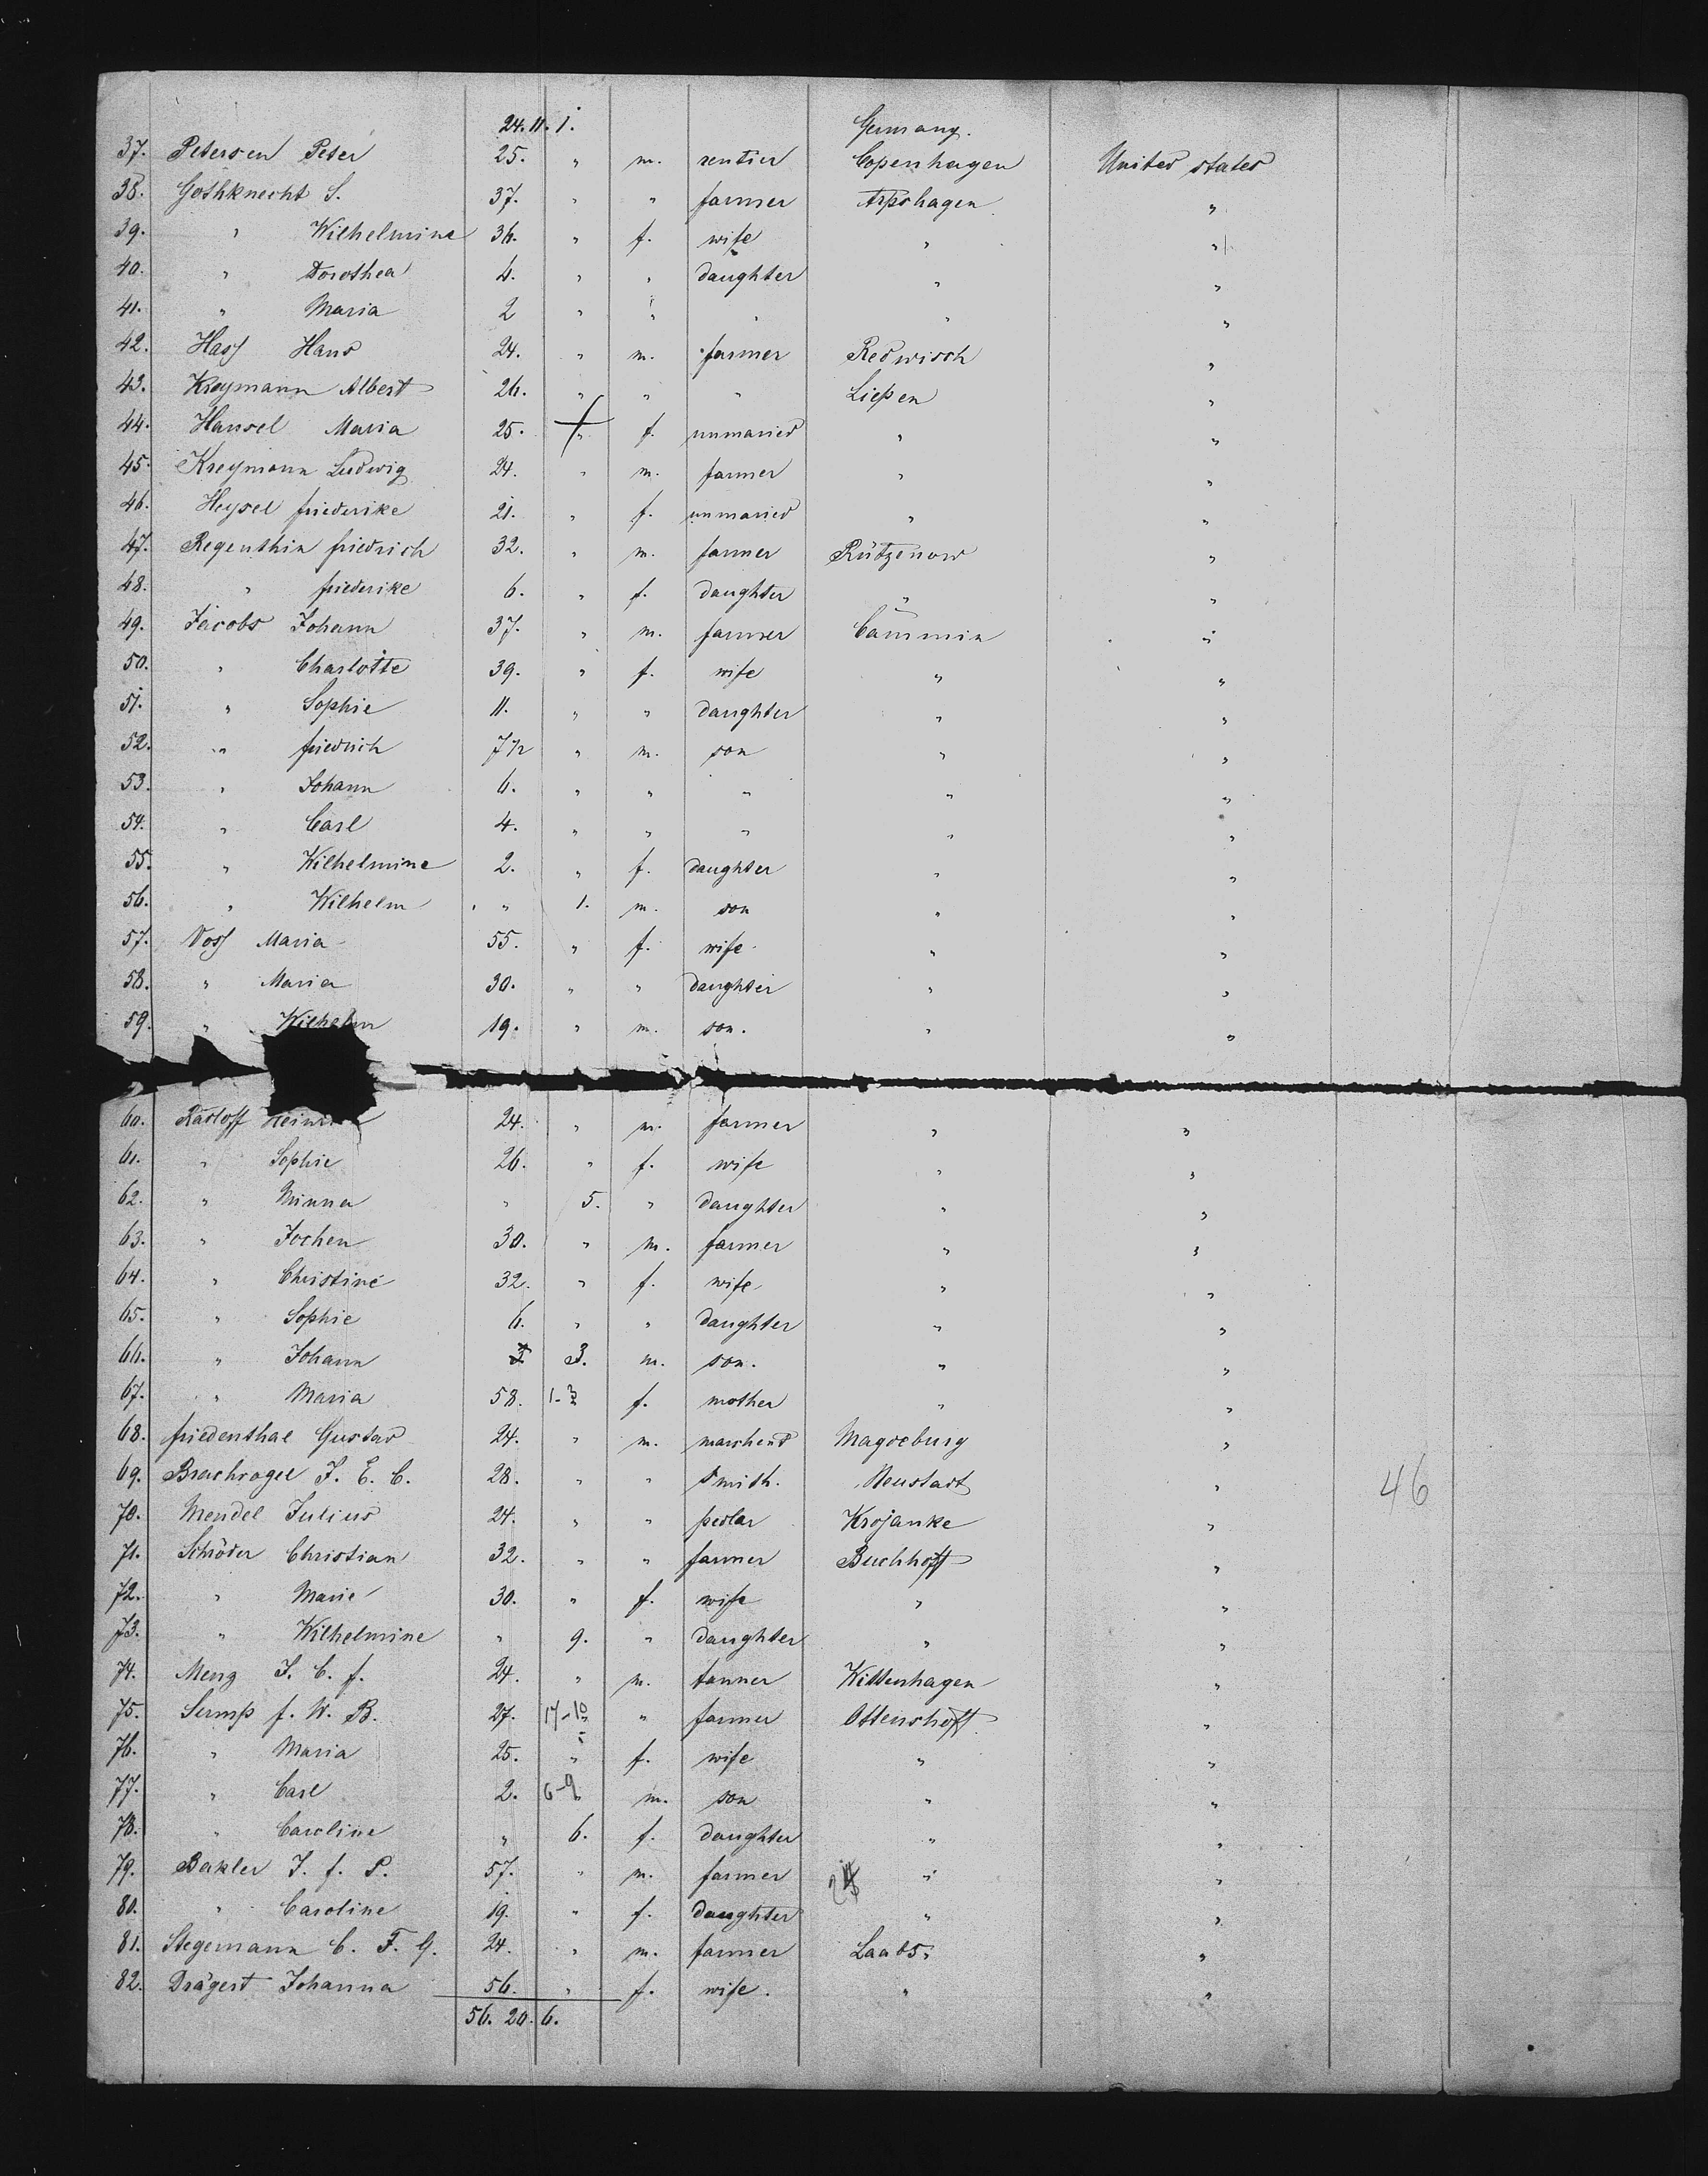 24. 11. 1. Germany.
37. Petersen Peter 25. " m. rentier Copenhagen United states
38. Gothknecht S. 37. " " farmer Arpshagen "
39. " Wilhelmine 36. " f. wife " "
40. " Dorothea 4. " " daughter " "
41. " Maria 2 " " " " "
42. Hass Hans 24. " m. farmer Redwisch "
43. Kreymann Albert 26. " " " Liepen "
44. Hansel Maria 25. " f. unmaried " "
45. Kreymann Ludwig 24. " m. farmer " "
46. Heysel friederike 21. " f. unmaried " "
47. Regenthin friedrich 32. " m. farmer Rützenow "
48. " friederike 6. " f. daughter " "
49. Jacobs Johann 37. " m. farmer Cammin "
50. " Charlotte 39. " f. wife " "
51. " Sophie 11. " " daughter " "
52. " friedrich 7 1/2 " m. son " "
53. " Johann 6. " " " " "
54. " Carl 4. " " " " "
55. " Wilhelmine 2. " f. daughter " "
56. " Wilhelm " 1. m. son " "
57. Voss Maria 55. " f. wife " "
58. " Maria 30. " " daughter " "
59. " Wilhelm 19. " m. son. " "
60. Rasloff 24. " m. farmer " "
61. " Sophie 26. " f. wife " "
62. " Minna " 5. " daughter " "
63. " Jochen 30. " m. farmer " "
64. " Christine 32. " f. wife " "
65. " Sophie 6. " " daughter " "
66. " Johann 3. m. son. " "
67. " Maria 58. f. mother " "
68. friedenthal Gustav 24. " m. marchend Magdeburg "
69. Brachvogel J. E. C. 28. " " Smith. Neustadt "
70. Mendel Julius 24. " " pedlar Krojanke "
71. Schröder Christian 32. " " farmer Buchhoff "
72. " Marie 30. " f. wife " "
73. " Wilhelmine " 9. " daughter " "
74. Meng J. C. f. 24. " m. tanner Wittenhagen "
75. f. W. B. 27. 17-10 " farmer Ottenshoff "
76. " Maria 25. " f. wife " "
77. " Carl 2. 6-9 m. son " "
78. " Caroline " 6. f. daughter " "
79. Bakler J. f. P. 57. " m. farmer " "
80. " Caroline 19. " f. daughter " "
81. Stegemann C. F. G. 24. " m. farmer Laabs. "
82. Drägert Johanna 56. " f. wife. " "
56. 20. 6.
46